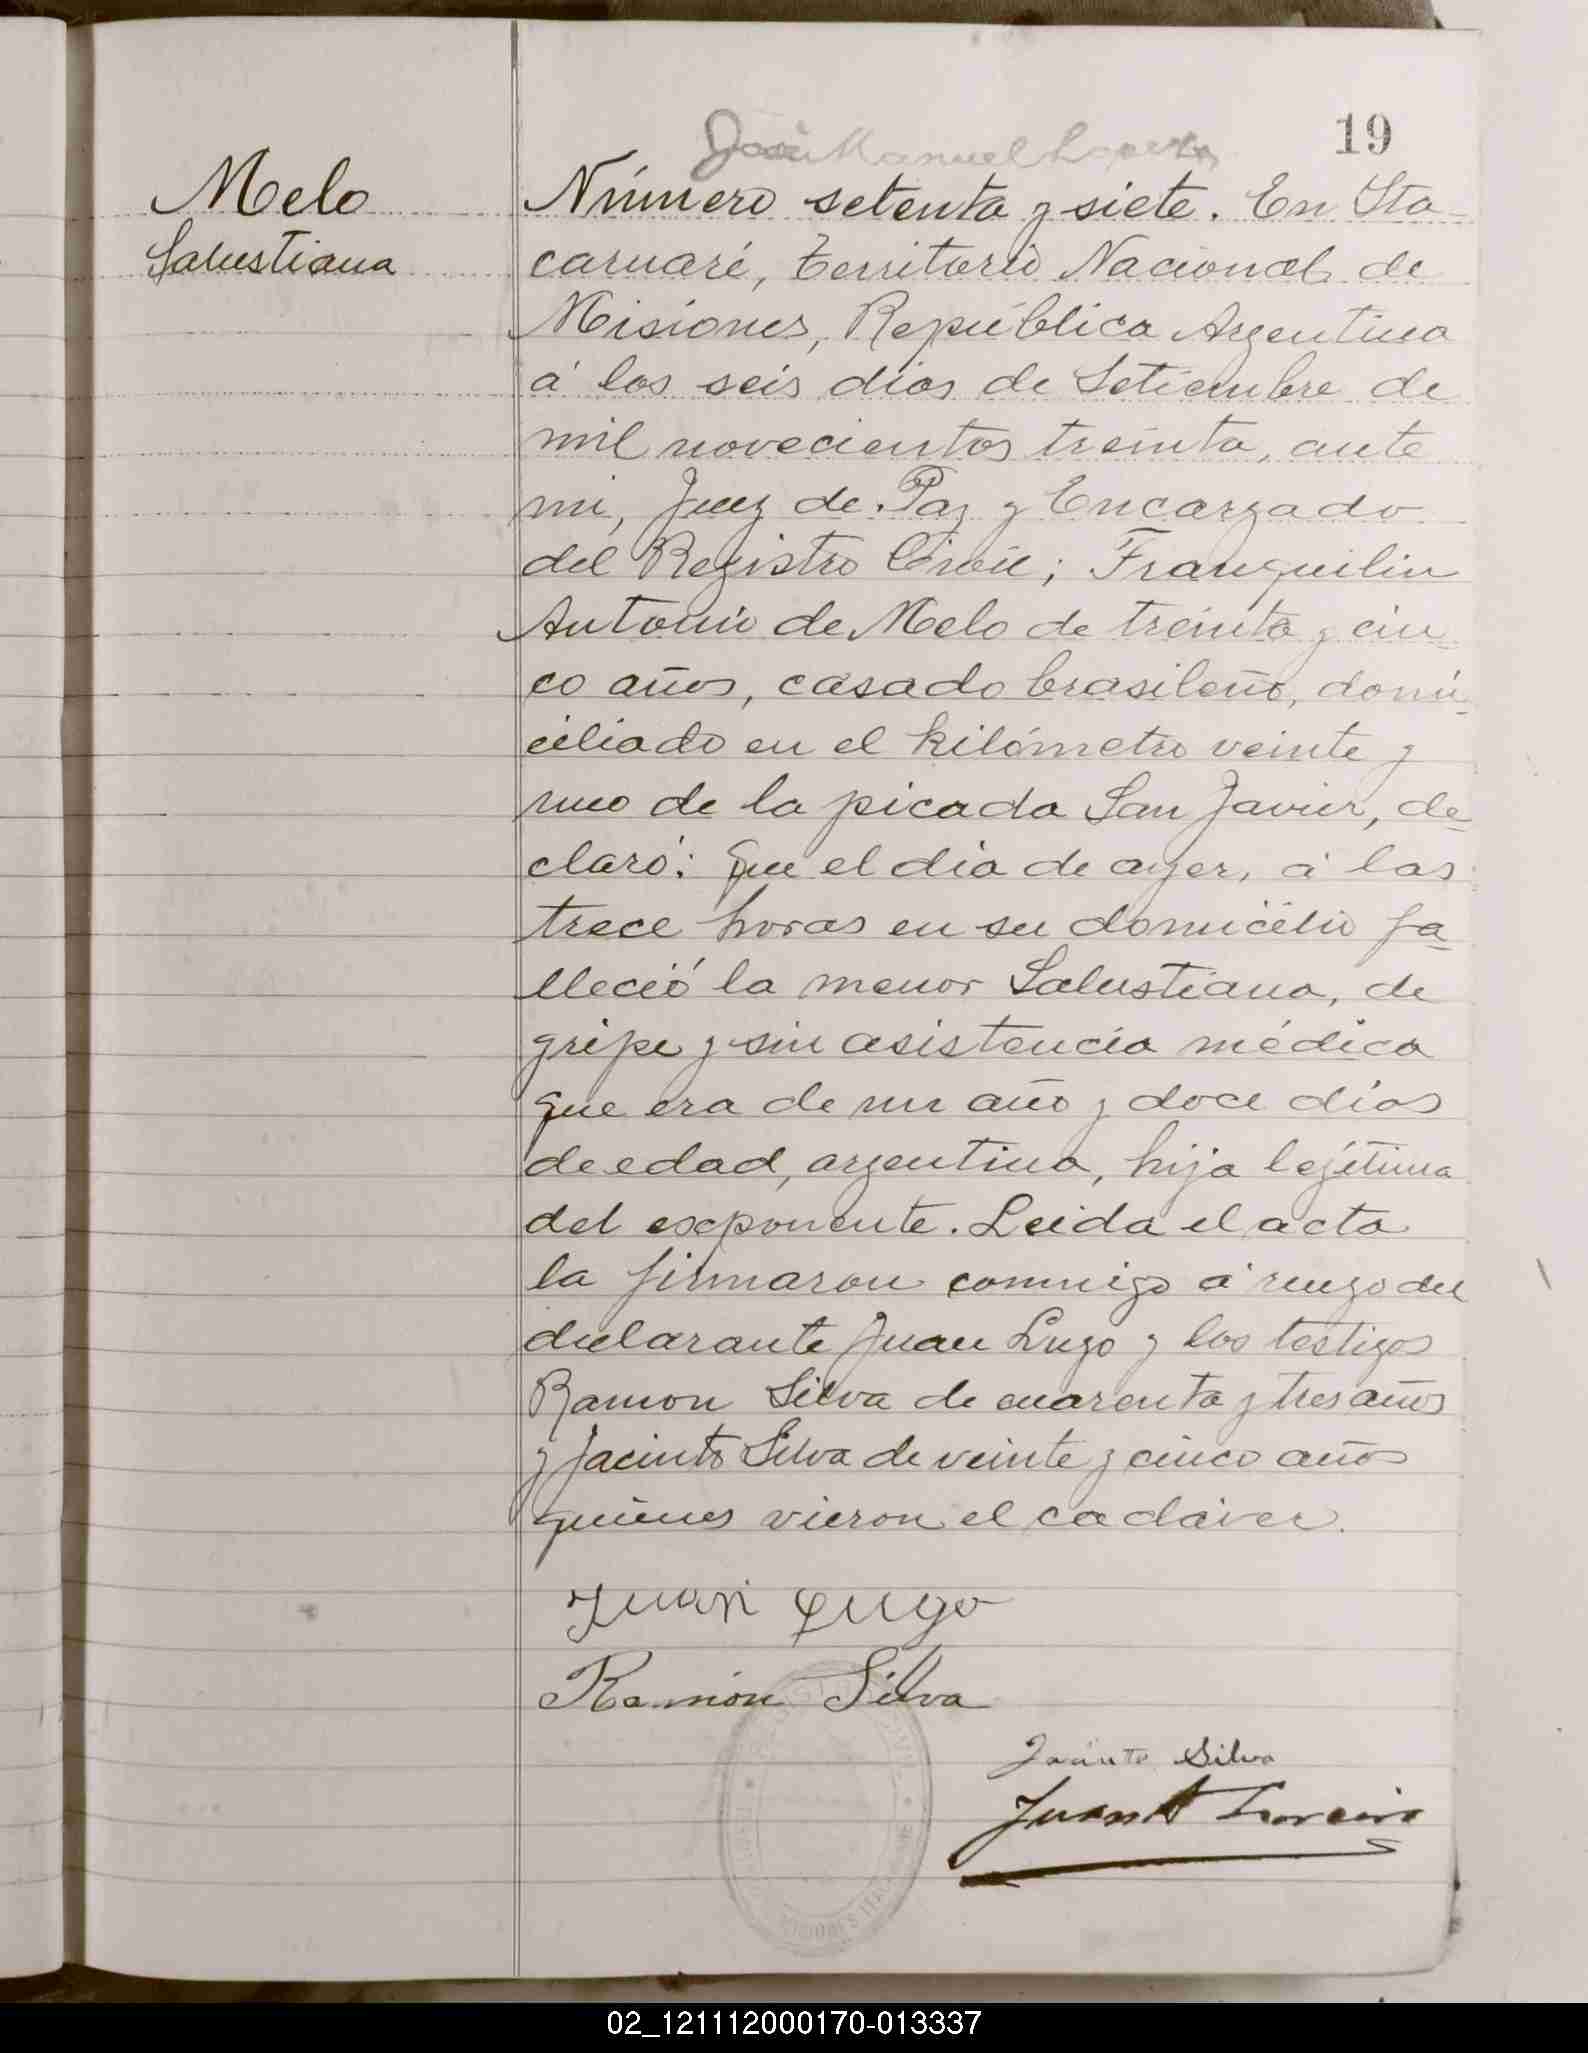 19
José Manuel
Melo
Salustiana
Número setenta y siete. En Ita-
caruaré, Territorio Nacional de
Misiones, República Argentina
á los seis dias de Setiembre de
mil novecientos treinta, ante
mi, Juez de Paz y Encargado
del Registro Civil; Franquilin
Antonio de Melo de treinta y cin-
co años, casado brasileño, domi-
ciliado en el kilómetro veinte y
uno de la picada San Javier, de-
claró: Que el dia de ayer, á las
trece horas en su domicilio fa-
lleció la menor Salustiana, de
gripe y sin asistencia médica
que era de un año y doce dias
de edad, argentina, hija legítima
del exponente. Leida el acta
la firmaron conmigo á ruego del
declarante Juan Lugo y los testigos
Ramon Silva de cuarenta y tres años
y Jacinto Silva de veinte y cinco años
quienes vieron el cadáver.
Juan Lugo
Ramón Silva
Jacinto Silva
Juan A
02_121112000170-013337